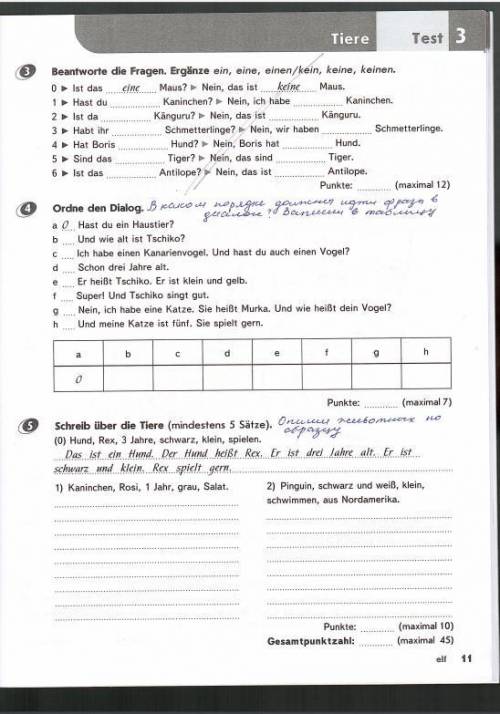 Tiere Test 3
3 Beantworte die Fragen. Ergänze ein, eine, einen/kein, keine, keinen.
0 ▶ Ist das eine Maus? ▶ Nein, das ist keine Maus.
1 ▶ Hast du ........ Kaninchen? ▶ Nein, ich habe ........ Kaninchen.
2 ▶ Ist da ........ Känguru? ▶ Nein, das ist ........ Känguru.
3 ▶ Habt ihr ........ Schmetterlinge? ▶ Nein, wir haben ........ Schmetterlinge.
4 ▶ Hat Boris ........ Hund? ▶ Nein, Boris hat ........ Hund.
5 ▶ Sind das ........ Tiger? ▶ Nein, das sind ........ Tiger.
6 ▶ Ist das ........ Antilope? ▶ Nein, das ist ........ Antilope.
Punkte: ........ (maximal 12)
4 Ordne den Dialog. В каком порядке должны идти фразы в
диалоге? Запиши в таблицу
a 0 Hast du ein Haustier?
b .... Und wie alt ist Tschiko?
c .... Ich habe einen Kanarienvogel. Und hast du auch einen Vogel?
d .... Schon drei Jahre alt.
e .... Er heißt Tschiko. Er ist klein und gelb.
f .... Super! Und Tschiko singt gut.
g .... Nein, ich habe eine Katze. Sie heißt Murka. Und wie heißt dein Vogel?
h .... Und meine Katze ist fünf. Sie spielt gern.
a b c d e f g h
0
Punkte: ........ (maximal 7)
5 Schreib über die Tiere (mindestens 5 Sätze). Опиши животных по
образцу
(0) Hund, Rex, 3 Jahre, schwarz, klein, spielen.
Das ist ein Hund. Der Hund heißt Rex. Er ist drei Jahre alt. Er ist
schwarz und klein. Rex spielt gern.
1) Kaninchen, Rosi, 1 Jahr, grau, Salat.
2) Pinguin, schwarz und weiß, klein,
schwimmen, aus Nordamerika.
Punkte: ........ (maximal 10)
Gesamtpunktzahl: ........ (maximal 45)
elf 11